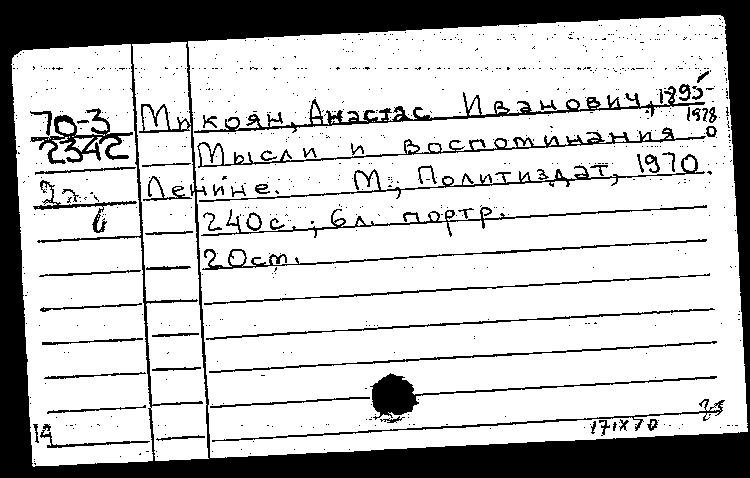 70-3
2342
2л.
6
Микоян, Анастас Иванович, 1895-
1978
Мысли и воспоминания о
Ленине. М., Политиздат, 1970.
240с.; 6л. портр.
20см.
14
17IX70